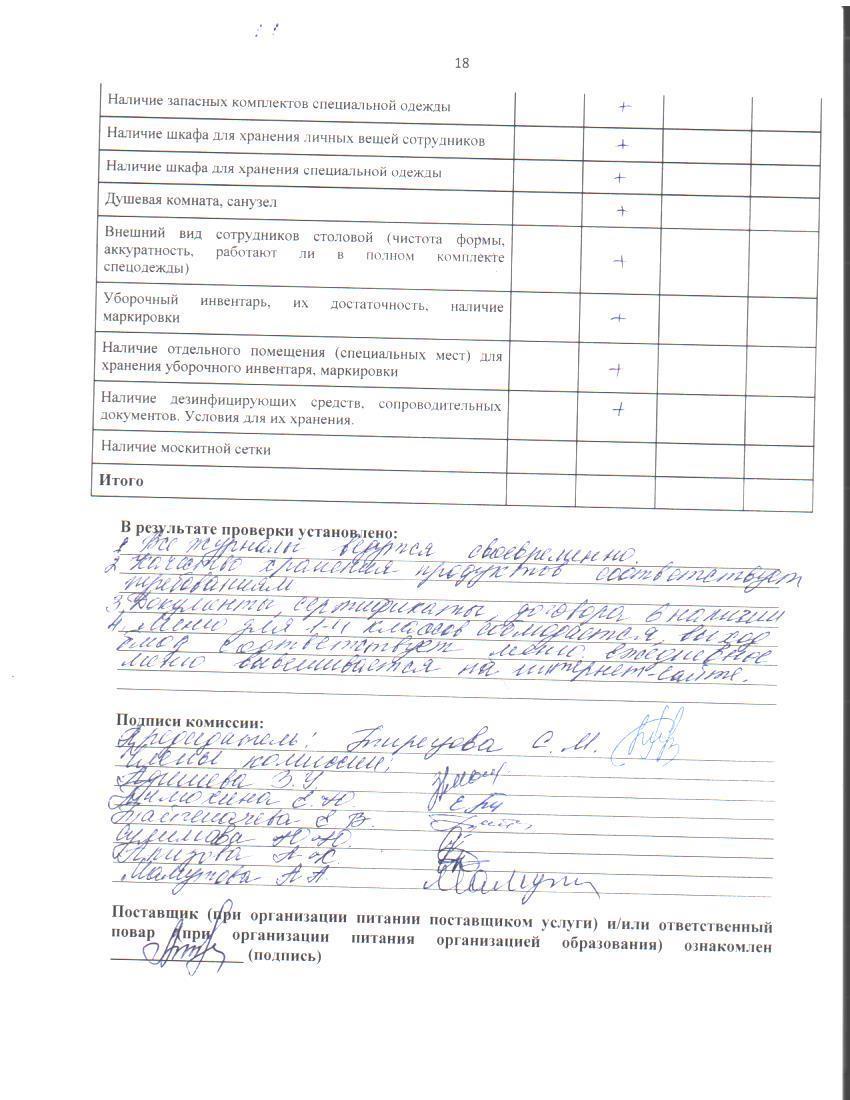 18
Наличие запасных комплектов специальной одежды +
Наличие шкафа для хранения личных вещей сотрудников +
Наличие шкафа для хранения специальной одежды +
Душевая комната, санузел +
Внешний вид сотрудников столовой (чистота формы,
аккуратность, работают ли в полном комплекте
спецодежды) +
Уборочный инвентарь, их достаточность, наличие
маркировки +
Наличие отдельного помещения (специальных мест) для
хранения уборочного инвентаря, маркировки +
Наличие дезинфицирующих средств, сопроводительных
документов. Условия для их хранения. +
Наличие москитной сетки
Итого
В результате проверки установлено:
1. Все журналы ведутся своевременно.
2. Качество хранения продуктов соответствует
требованиям
3. Документы, сертификаты, договора в наличии
4. Меню для 1-11 классов соблюдается, выход
блюд соответствует меню. ежедневное
меню вывешивается на интернет-сайте.
Подписи комиссии:
Председатель: С. М.
Члены комиссии:
Адишева З. У.
Тимохина Е. Ю.
Е. В.
Ю. Ю.
А. Ж.
А. А.
Поставщик (при организации питании поставщиком услуги) и/или ответственный
повар (при организации питания организацией образования) ознакомлен
(подпись)